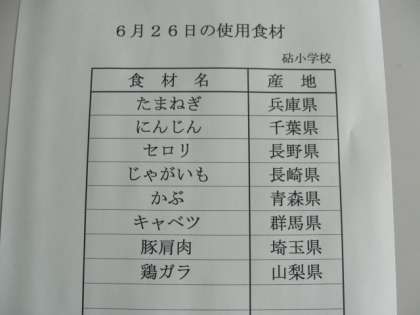 6月26日の使用食材
砧小学校
食材名 産地
たまねぎ 兵庫県
にんじん 千葉県
セロリ 長野県
じゃがいも 長崎県
かぶ 青森県
キャベツ 群馬県
豚肩肉 埼玉県
鶏ガラ 山梨県